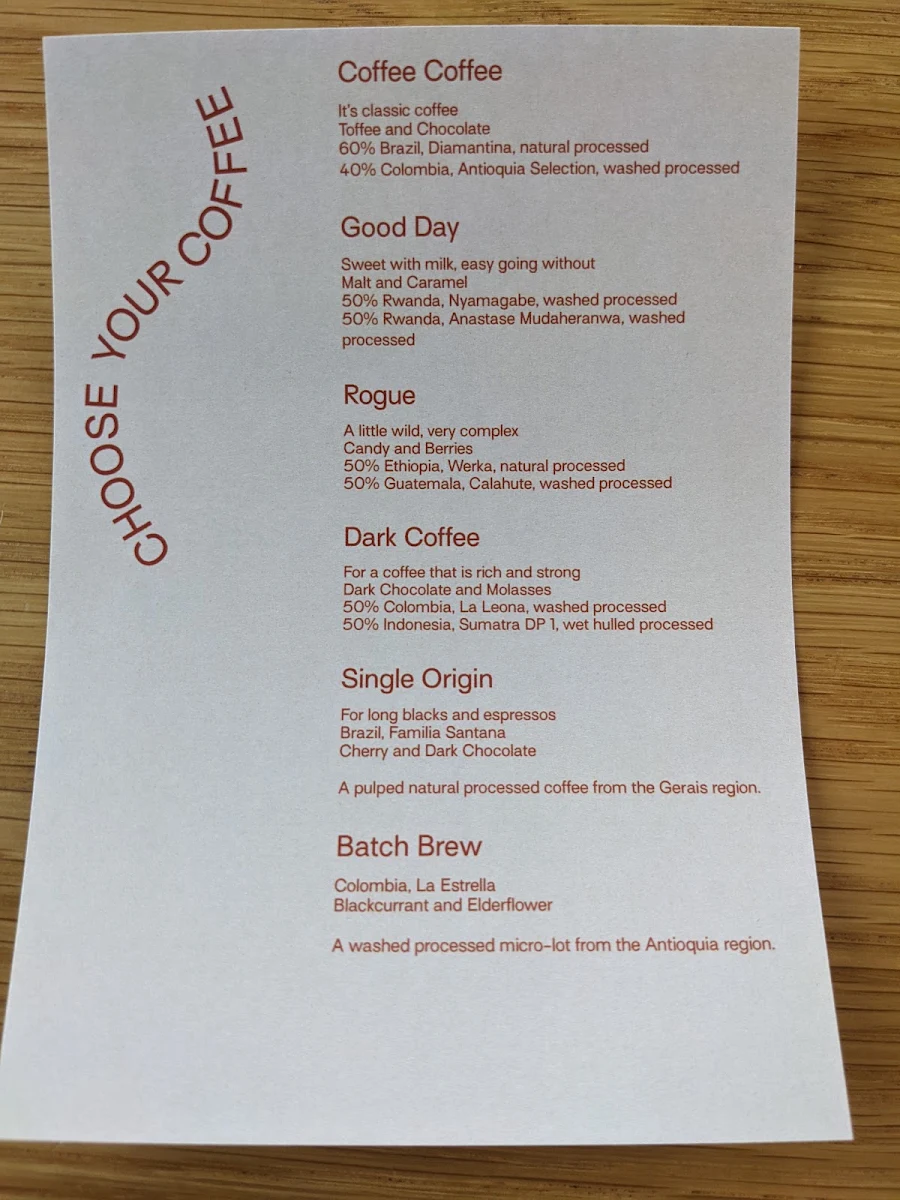 CHOOSE YOUR COFFEE
Coffee Coffee
It's classic coffee
Toffee and Chocolate
60% Brazil, Diamantina, natural processed
40% Colombia, Antioquia Selection, washed processed
Good Day
Sweet with milk, easy going without
Malt and Caramel
50% Rwanda, Nyamagabe, washed processed
50% Rwanda, Anastase Mudaheranwa, washed
processed
Rogue
A little wild, very complex
Candy and Berries
50% Ethiopia, Werka, natural processed
50% Guatemala, Calahute, washed processed
Dark Coffee
For a coffee that is rich and strong
Dark Chocolate and Molasses
50% Colombia, La Leona, washed processed
50% Indonesia, Sumatra DP 1, wet hulled processed
Single Origin
For long blacks and espressos
Brazil, Familia Santana
Cherry and Dark Chocolate
A pulped natural processed coffee from the Gerais region.
Batch Brew
Colombia, La Estrella
Blackcurrant and Elderflower
A washed processed micro-lot from the Antioquia region.